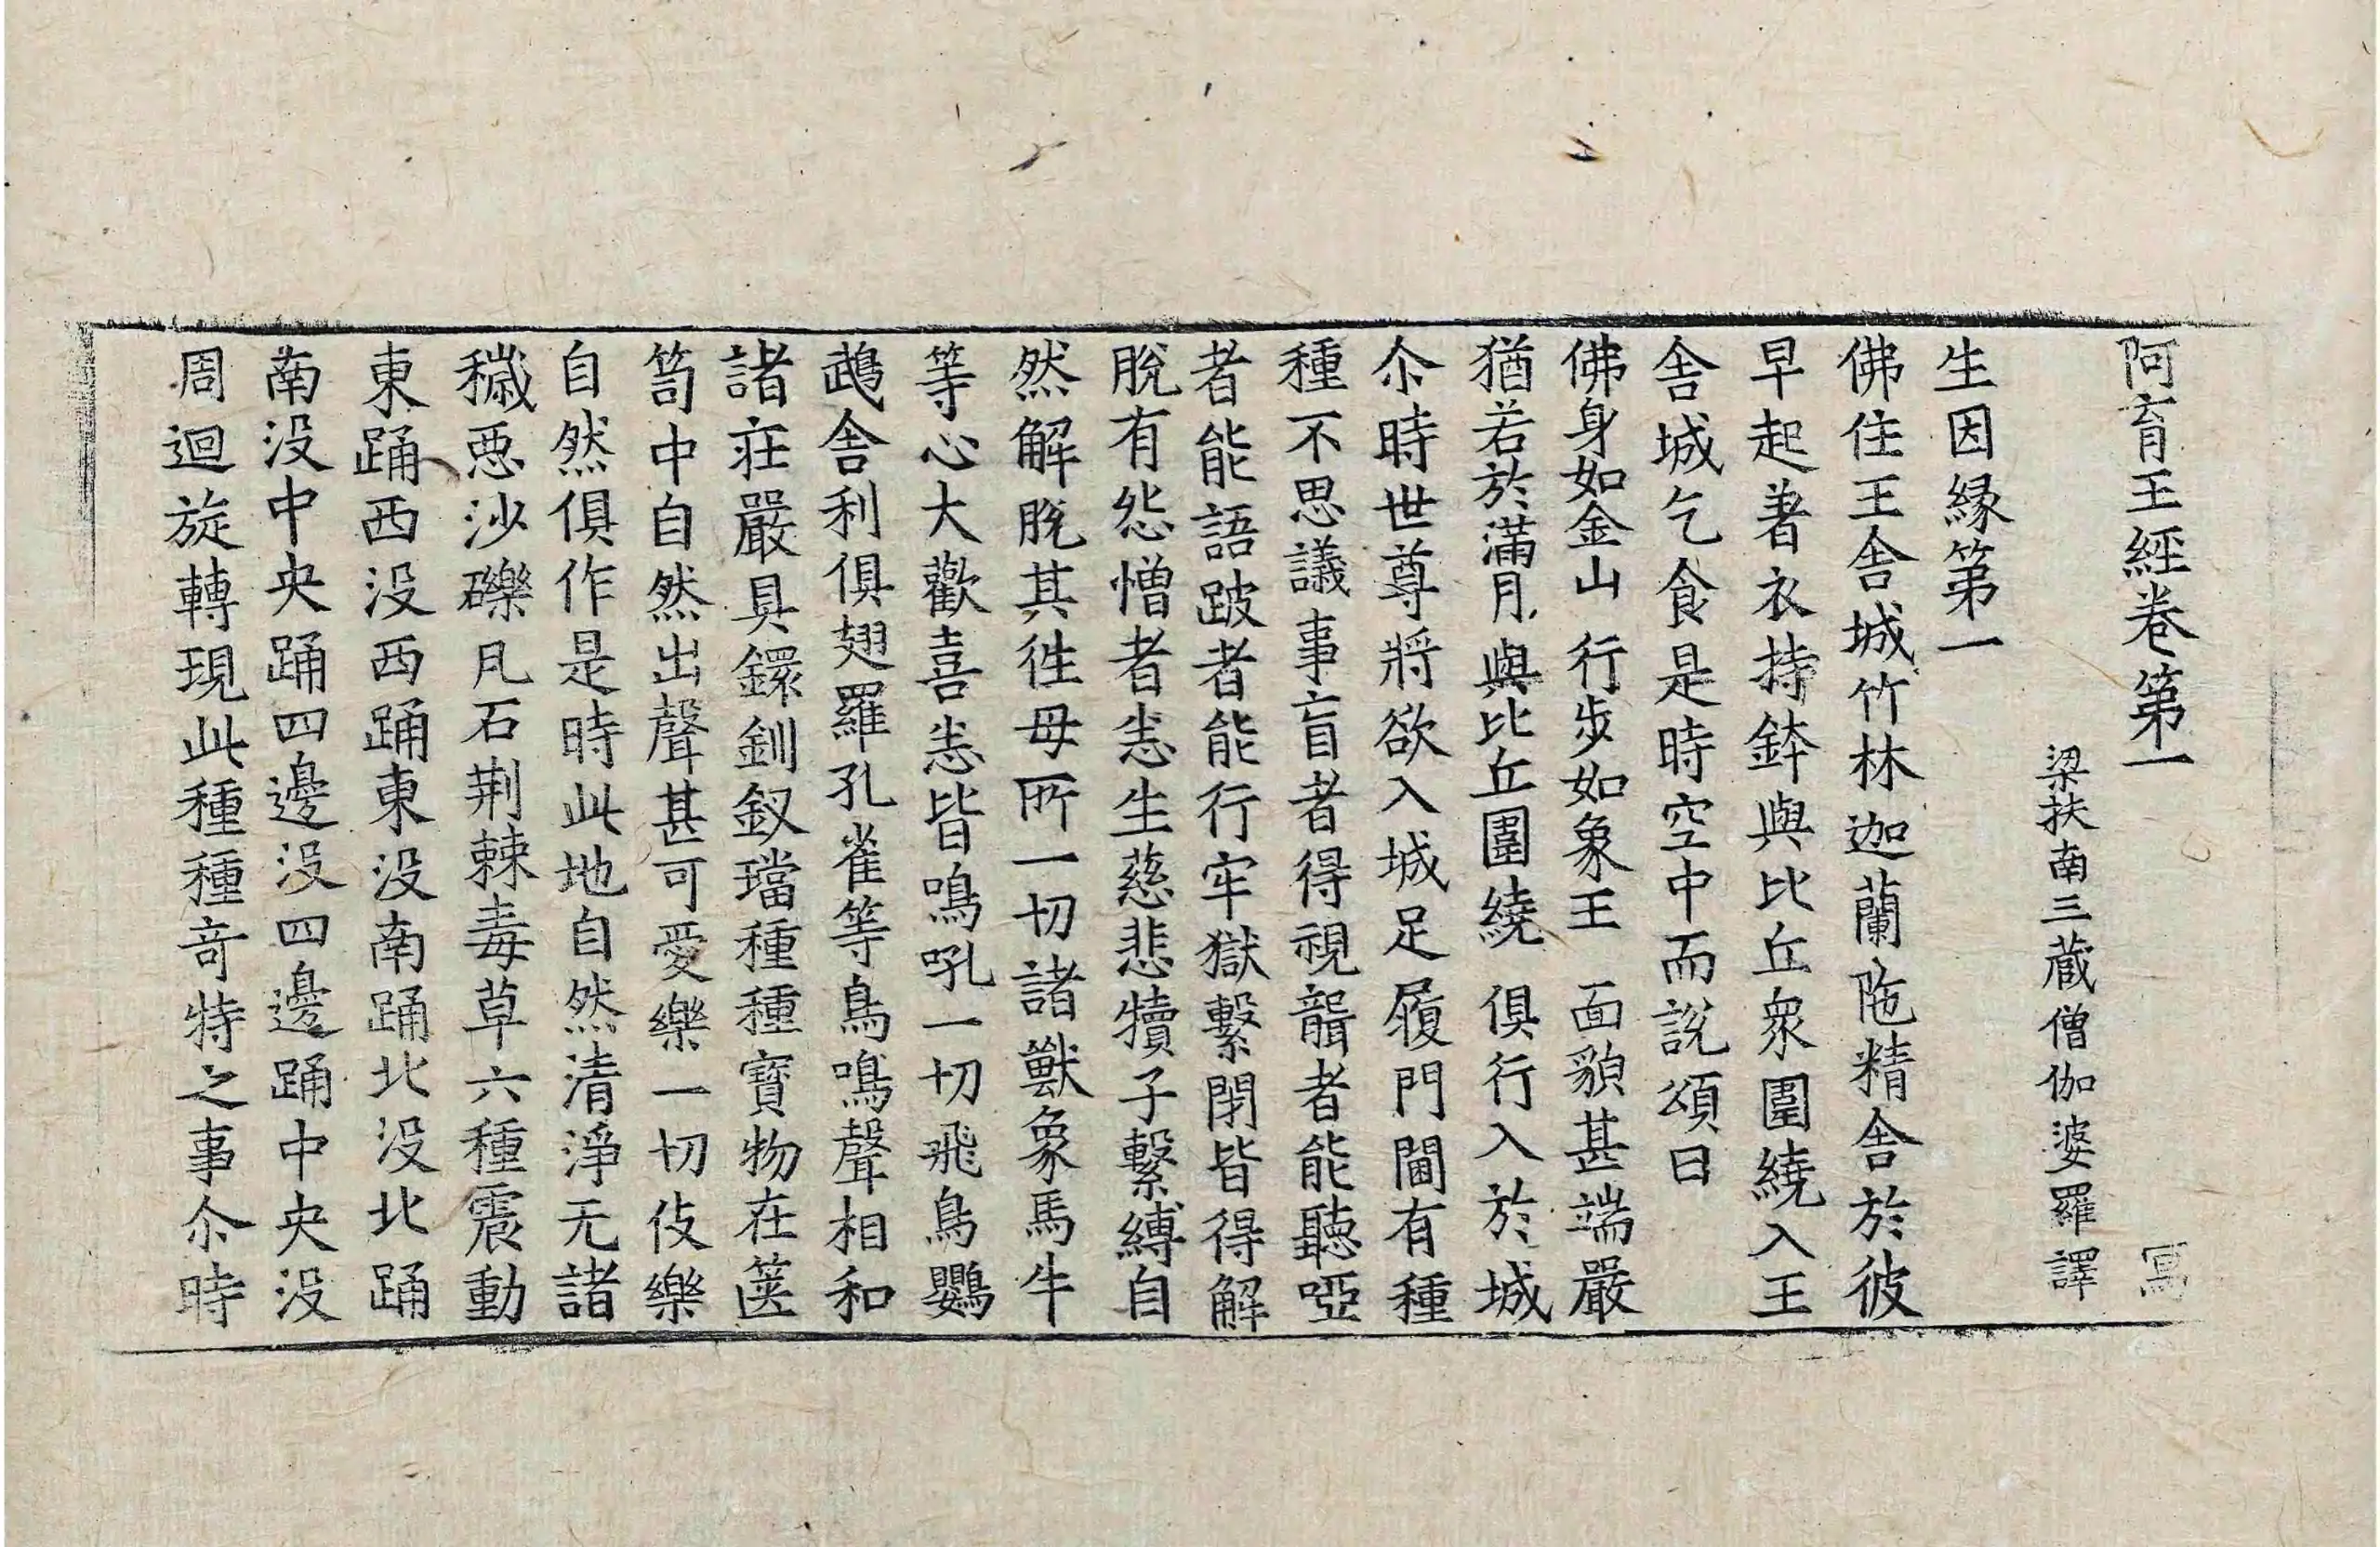 阿育王經卷第一 寫
梁扶南三藏僧伽婆羅譯
生因緣第一
佛住王舍城竹林迦蘭陁精舍於彼
早起著衣持鉢與比丘衆圍繞入王
舍城乞食是時空中而說頌曰
佛身如金山 行步如象王 面貌甚端嚴
猶若於滿月 與比丘圍繞 俱行入於城
尒時世尊將欲入城足履門閫有種
種不思議事盲者得視聾者能聽啞
者能語跛者能行牢獄繫閉皆得解
脫有怨憎者恚生慈悲犢子繫縛自
然解脫其徃母所一切諸獸象馬牛
等心大歡喜恚皆鳴吼一切飛鳥鸚
鵡舍利俱翅羅孔雀等鳥鳴聲相和
諸莊嚴具鐶釧釵璫種種寶物在篋
笥中自然出聲甚可愛樂一切伎樂
自然俱作是時此地自然清淨无諸
穢惡沙礫凡石荆棘毒草六種震動
東踊西没西踊東没南踊北没北踊
南没中央踊四邊没四邊踊中央没
周迴旋轉現此種種奇特之事尒時